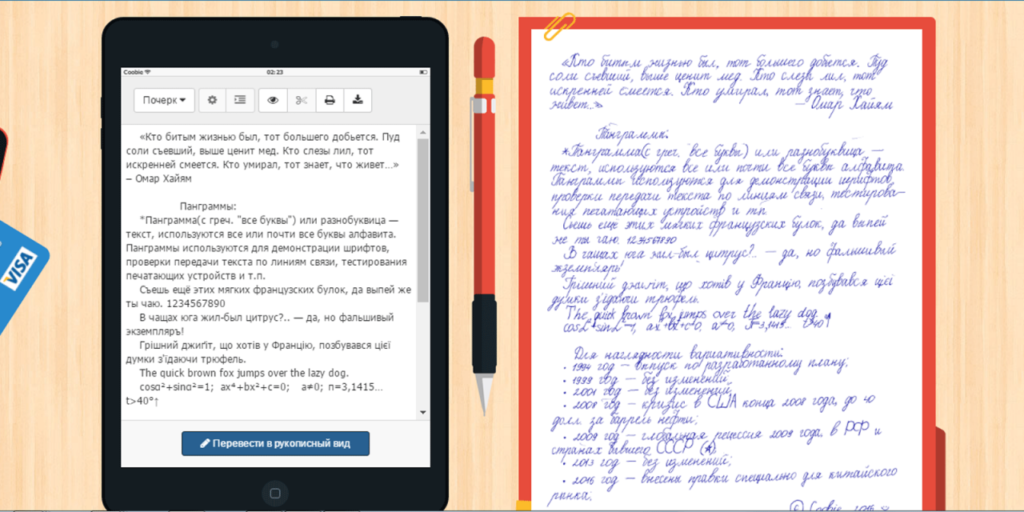 Coobie
02:23
Почерк
«Кто битым жизнью был, тот большего добьется. Пуд
соли съевший, выше ценит мед. Кто слезы лил, тот
искренней смеется. Кто умирал, тот знает, что живет...»
– Омар Хайям
Панграммы:
"Панграмма(с греч. "все буквы") или разнобуквица —
текст, используются все или почти все буквы алфавита.
Панграммы используются для демонстрации шрифтов,
проверки передачи текста по линиям связи, тестирования
печатающих устройств и т.п.
Съешь ещё этих мягких французских булок, да выпей же
ты чаю. 1234567890
В чащах юга жил-был цитрус?.. — да, но фальшивый
экземпляръ!
Грішний джиґіт, що хотів у Францію, позбувався цієї
думки з'їдаючи трюфель.
The quick brown fox jumps over the lazy dog.
cosα²+sinα²=1; ax⁴+bx²+c=0; a≠0; п=3,1415...
t>40°↑
Перевести в рукописный вид
VISA
«Кто битым жизнью был, тот большего добьется. Пуд
соли съевший, выше ценит мед. Кто слезы лил, тот
искренней смеется. Кто умирал, тот знает, что
живет...»
— Омар Хайям
Панграммы:
"Панграмма(с греч. "все буквы") или разнобуквица —
текст, используются все или почти все буквы алфавита.
Панграммы используются для демонстрации шрифтов,
проверки передачи текста по линиям связи, тестирова-
ния печатающих устройств и т.п.
Съешь ещё этих мягких французских булок, да выпей
же ты чаю. 1234567890
В чащах юга жил-был цитрус?.. — да, но фальшивый
экземпляръ!
Грішний джиґіт, що хотів у Францію, позбувався цієї
думки з'їдаючи трюфель.
The quick brown fox jumps over the lazy dog.
cosα²+sinα²=1; ax⁴+bx²+c=0; a≠0; п=3,1415... t>40°↑
Для наглядности вариативности:
• 1994 год — выпуск по разработанному плану;
• 1999 год — без изменений;
• 2001 год — без изменений;
• 2008 год — кризис в США конца 2008 года, до 40
долл. за баррель нефти;
• 2009 год — глобальная рецессия 2009 года, в РФ и
странах бывшего СССР
• 2013 год — без изменений;
• 2016 год — внесены правки специально для китайского
рынка;
© Coobie